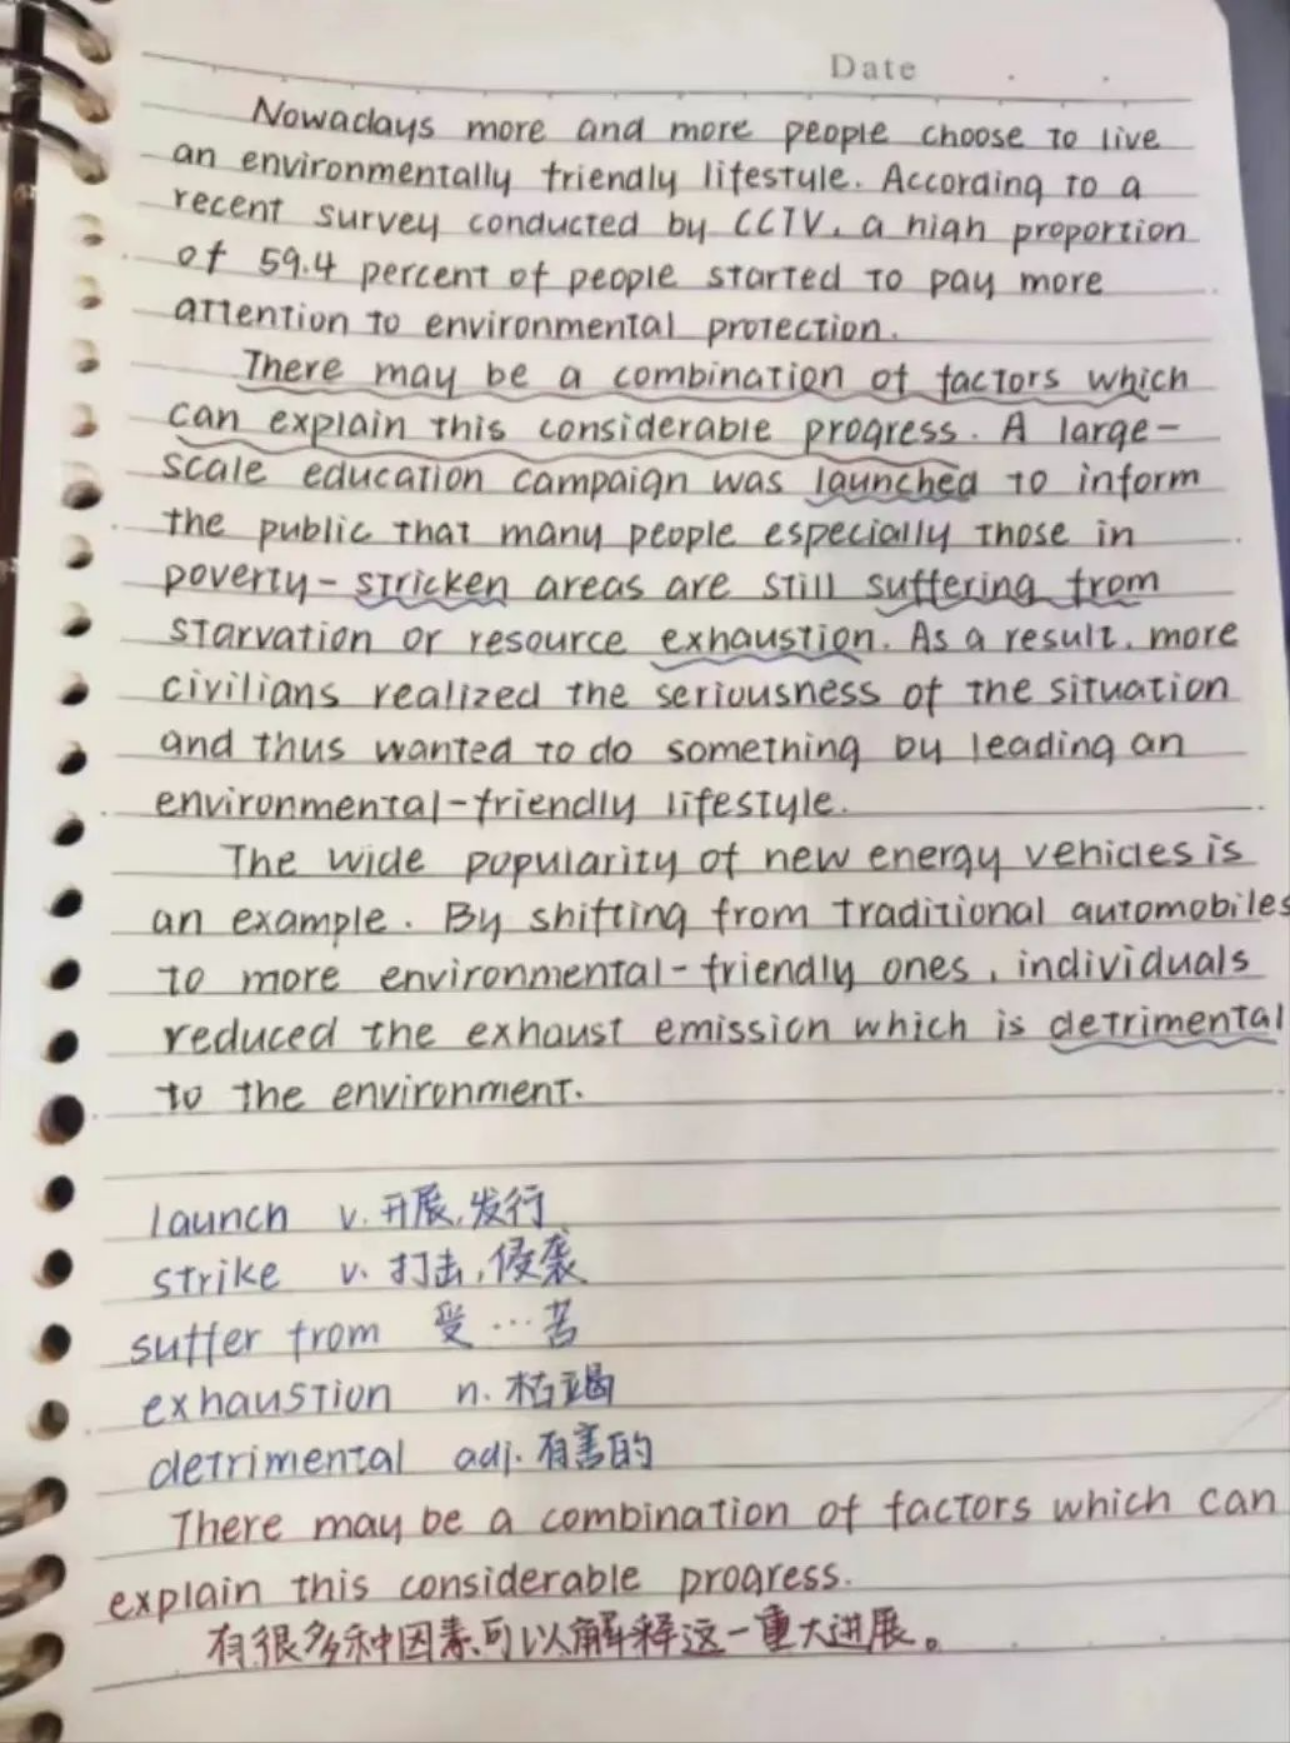 Date
Nowadays more and more people choose to live
an environmentally friendly lifestyle. According to a
recent survey conducted by CCTV, a high proportion
of 59.4 percent of people started to pay more
attention to environmental protection.
There may be a combination of factors which
can explain this considerable progress. A large-
scale education campaign was launched to inform
the public that many people especially those in
poverty-stricken areas are still suffering from
starvation or resource exhaustion. As a result, more
civilians realized the seriousness of the situation
and thus wanted to do something by leading an
environmental-friendly lifestyle.
The wide popularity of new energy vehicles is
an example. By shifting from traditional automobiles
to more environmental-friendly ones, individuals
reduced the exhaust emission which is detrimental
to the environment.
launch v. 开展,发行
strike v. 打击,侵袭
suffer from 受…苦
exhaustion n. 枯竭
detrimental adj. 有害的
There may be a combination of factors which can
explain this considerable progress.
有很多种因素可以解释这一重大进展。